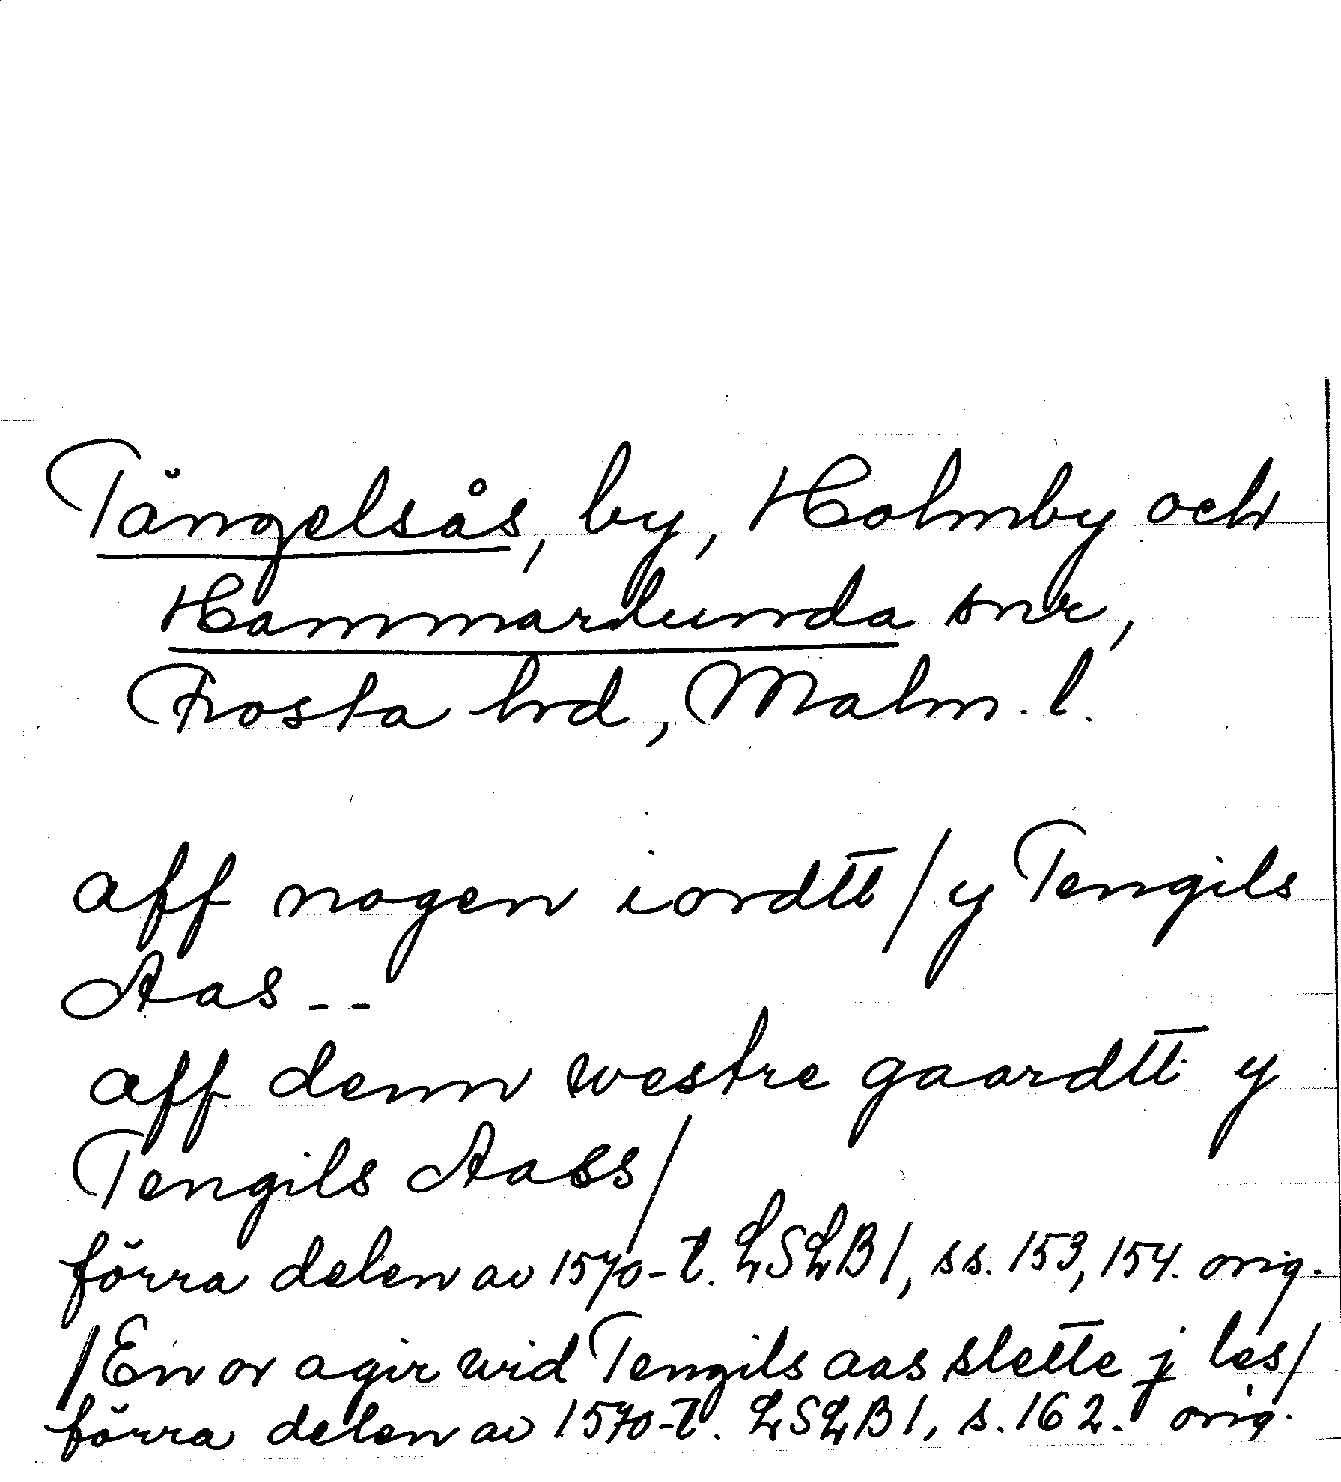 Tängelsås, by, Holmby och
Hammarlunda snr,
Frosta hrd, Malm. l.
aff nogen iordtt / y Tengils
Aas --
aff denn westre gaardtt y
Tengils Aass /
förra delen av 1570-t. LSLB 1, ss. 153, 154. orig.
/ En or agir wid Tengils aas slette j les /
förra delen av 1570-t. LSLB 1, s. 162. orig.